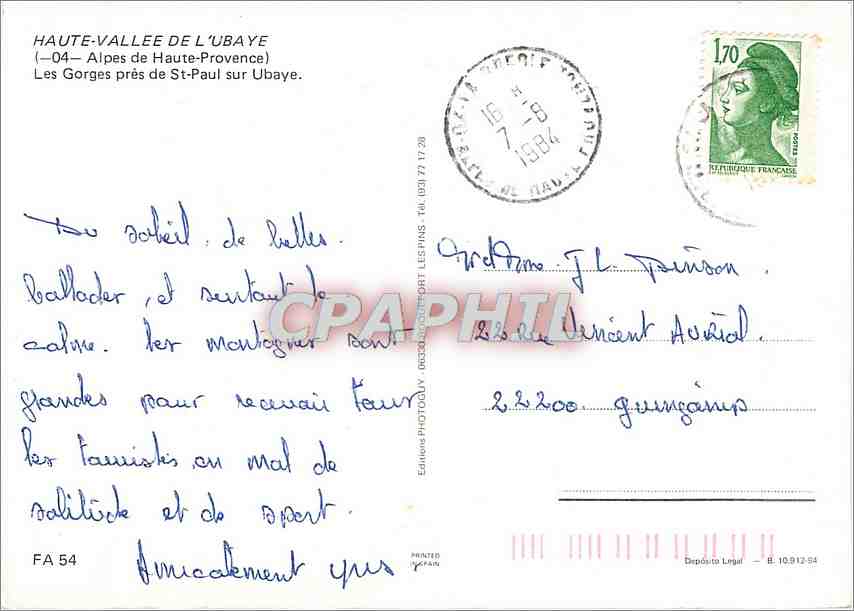 HAUTE-VALLEE DE L'UBAYE
(—04— Alpes de Haute-Provence)
Les Gorges près de St-Paul sur Ubaye.
Du soleil. de belles.
ballades, et surtout le
calme. les montagnes sont
grandes pour recevoir tous
les touristes en mal de
solitude et de sport.
Amicalement yves
FA 54
Editions PHOTOGUY - 06330 ROQUEFORT LES PINS - Tél. (93) 77 17 28
PRINTED
IN SPAIN
16 H
7 -8
1984
1,70
POSTES
REPUBLIQUE FRANÇAISE
JL
22 Rue Vincent Auriol.
22200. guingamp
Depósito Legal — B. 10.912-94
CPAPHIL